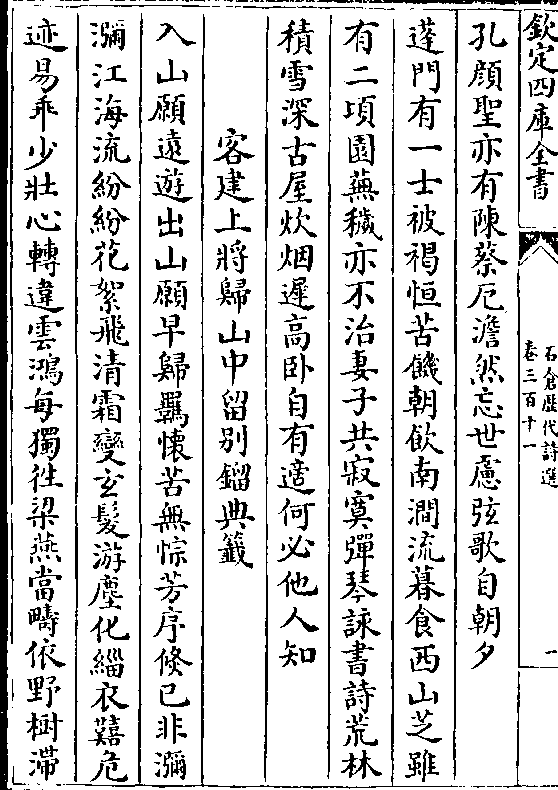 欽定四庫全書
石倉歷代詩選
卷三百十一
一
孔顔聖亦有陳蔡厄澹然忘世慮弦歌自朝夕
蓬門有一士被褐恒苦饑朝飲南澗流暮食西山芝雖
有二項園蕪穢亦不治妻子共寂寞彈琴詠書詩荒林
積雪深古屋炊烟遲高卧自有適何必他人知
客建上將歸山中留别鎦典籖
入山願遠遊出山願早歸羈懷苦無悰芳序倐已非瀰
瀰江海流紛紛花絮飛清霜變玄髮游塵化緇衣囏危
迹易乖少壯心轉違雲鴻每獨徃梁燕當疇依野樹滯